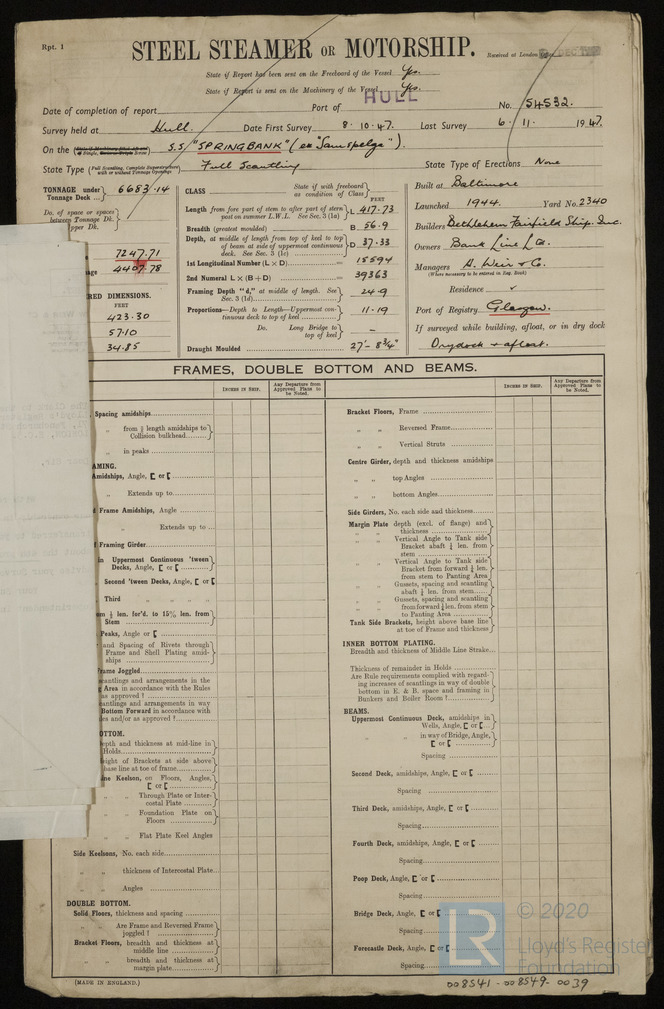 Rpt. 1
STEEL STEAMER OR MOTORSHIP.
Received at London Office
State if Report has been sent on the Freeboard of the Vessel Yes.
State if Report is sent on the Machinery of the Vessel Yes.
Date of completion of report Port of HULL No. 54532.
Survey held at Hull. Date First Survey 8. 10. 47. Last Survey 6. 11. 1947.
On the S.S. "SPRINGBANK" (ex "Samspelga").
State Type (Full Scantling, Complete Superstructure with or without Tonnage Openings) Full Scantling State Type of Erections None
TONNAGE under Tonnage Deck 6683.14
Do. of space or spaces between Tonnage Dk.
pper Dk.
7247.71
nage 4407.78
RED DIMENSIONS.
FEET
423.30
57.10
34.85
CLASS State if with freeboard as condition of Class
FEET
Length from fore part of stem to after part of stern post on summer L.W.L. See Sec. 3 (1a) L 417.73
Breadth (greatest moulded) B 56.9
Depth, at middle of length from top of keel to top of beam at side of uppermost continuous deck. See Sec. 3 (1c) D 37.33
1st Longitudinal Number (L × D) 15594
2nd Numeral L × (B + D) 39363
Framing Depth "d," at middle of length. See Sec. 3 (1d) 24.9
Proportions—Depth to Length—Uppermost continuous deck to top of keel 11.19
Do. Long Bridge to top of keel –
Draught Moulded 27'- 8¾"
Built at Baltimore
Launched 1944. Yard No. 2340
Builders Bethlehem Fairfield Ship. Inc.
Owners Bank Line Ld.
Managers A. Weir & Co.
(Where necessary to be entered in Reg. Book)
Residence
Port of Registry Glasgow.
If surveyed while building, afloat, or in dry dock
Drydock & afloat.
FRAMES, DOUBLE BOTTOM AND BEAMS.
INCHES IN SHIP.
Any Departure from Approved Plans to be Noted.
INCHES IN SHIP.
Any Departure from Approved Plans to be Noted.
Spacing amidships
" from ⅗ length amidships to Collision bulkhead
" in peaks
AMING.
Amidships, Angle, [ or [
" Extends up to
Frame Amidships, Angle
" Extends up to
f Framing Girder
in Uppermost Continuous 'tween Decks, Angle, [ or [
Second 'tween Decks, Angle, [ or [
Third " " "
len. for'd. to 15% len. from Stem
Peaks, Angle or [
and Spacing of Rivets through Frame and Shell Plating amidships
rame Joggled
scantlings and arrangements in the g Area in accordance with the Rules as approved ?
cantlings and arrangements in way Bottom Forward in accordance with les and/or as approved !
OTTOM.
epth and thickness at mid-line in Holds
eight of Brackets at side above base line at toe of frame
ine Keelson, on Floors, Angles, [ or [
" " Through Plate or Intercostal Plate
" " Foundation Plate on Floors
" " Flat Plate Keel Angles
Side Keelsons, No. each side
" " thickness of Intercostal Plate
" " Angles
DOUBLE BOTTOM.
Solid Floors, thickness and spacing
" " Are Frame and Reversed Frame joggled ?
Bracket Floors, breadth and thickness at middle line
" " breadth and thickness at margin plate
Bracket Floors, Frame
" " Reversed Frame
" " Vertical Struts
Centre Girder, depth and thickness amidships
" " top Angles
" " bottom Angles
Side Girders, No. each side and thickness
Margin Plate depth (excl. of flange) and thickness
" " Vertical Angle to Tank side Bracket abaft ¼ len. from stem
" " Vertical Angle to Tank side Bracket from forward ¼ len. from stem to Panting Area
" " Gussets, spacing and scantling abaft ¼ len. from stem
" " Gussets, spacing and scantling from forward ¼ len. from stem to Panting Area
Tank Side Brackets, height above base line at toe of Frame and thickness
INNER BOTTOM PLATING.
Breadth and thickness of Middle Line Strake
Thickness of remainder in Holds
Are Rule requirements complied with regarding increases of scantlings in way of double bottom in E. & B. space and framing in Bunkers and Boiler Room ?
BEAMS.
Uppermost Continuous Deck, amidships in Wells, Angle, [ or [
" " in way of Bridge, Angle, [ or [
Spacing
Second Deck, amidships, Angle, [ or [
Spacing
Third Deck, amidships, Angle, [ or [
Spacing
Fourth Deck, amidships, Angle, [ or [
Spacing
Poop Deck, Angle, [ or [
Spacing
Bridge Deck, Angle, [ or [
Spacing
Forecastle Deck, Angle, [ or [
Spacing
(MADE IN ENGLAND.)
LR
© 2020
Lloyd's Register
Foundation
008541-008549-0039